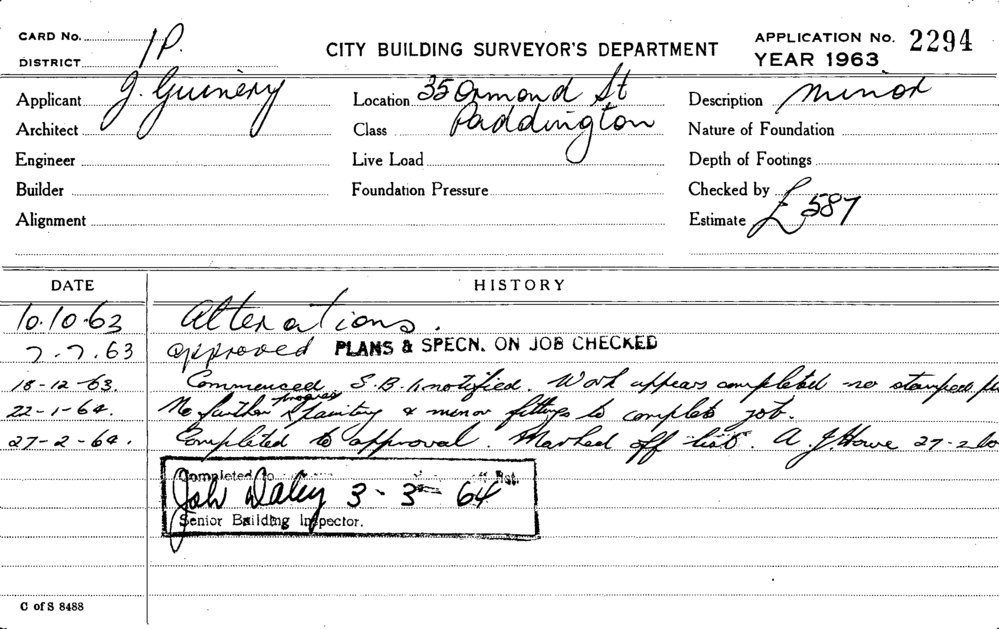 CARD No. 1P.
DISTRICT
CITY BUILDING SURVEYOR'S DEPARTMENT
APPLICATION No. 2294
YEAR 1963
Applicant J. Guinery
Location 35 Ormond St
Paddington
Description Minor
Architect
Class
Nature of Foundation
Engineer
Live Load
Depth of Footings
Builder
Foundation Pressure
Checked by
Alignment
Estimate £587
DATE HISTORY
10.10.63 Alterations.
7.7.63 approved PLANS & SPECN. ON JOB CHECKED
18-12-63. Commenced. S.B. notified. Work appears completed no stamped
22-1-64. No further progress Sanitary & minor fittings to complete job.
27-2-64. Completed to approval. Marked off list. A. J. Howe 27-2
Completed to list.
Joh Daley 3-3-64
Senior Building Inspector.
C of S 8488